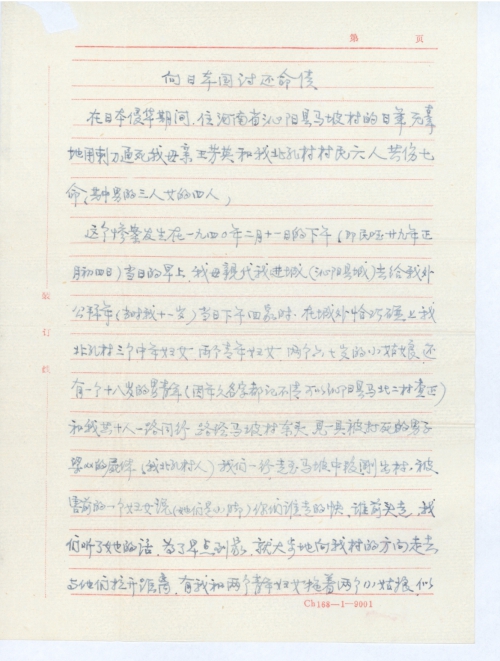 第 页
向日本国讨还命债
在日本侵华期间,住河南省沁阳县马坡村的日军无辜
地用刺刀捅死我母亲王芳英和我北孔村村民六人共伤七
命(其中男的三人女的四人)
这个惨案发生在一九四〇年二月十一日的下午(即民国廿九年正
月初四日)当日的早上,我母亲代我进城(沁阳县城)去给我外
公拜年(当时我十一岁)当日下午回家时,在城外恰巧碰上我
北孔村三个中年妇女一两个青年妇女一两个六七岁的小姑娘,还
有一个十八岁的男青年(因年久名字都记不清可以沁阳县马北二村查正)
和我共十人一路同行 路经马坡村东头 见一具被打死的男子
的尸体(我北孔村人)我们一行走至马坡中被测出村,被
害前的一个妇女说(她们是小脚)你们谁走的快,谁前头走,我
们听了她的话,为了早点到家,就大步地向我村的方向走去
与他们拉开距离,有我和两个青年妇女拖着两个小姑娘,似
装订线
Ch188—1—9001